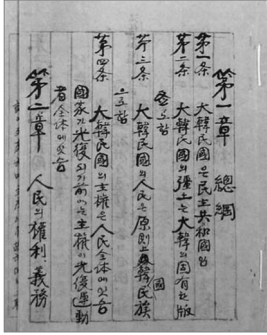 第一章 總綱
第一条 大韓民國은民主共和國임
第二条 大韓民國의疆土는大韓의固有한版
圖로함
第三条 大韓民國의人民은原則上韓國民族
으로함
第四条 大韓民國의主權은人民全体에잇슴
國家가光復되기前에는主權이光復運動
者全体에잇슴
第二章 人民의權利、義務